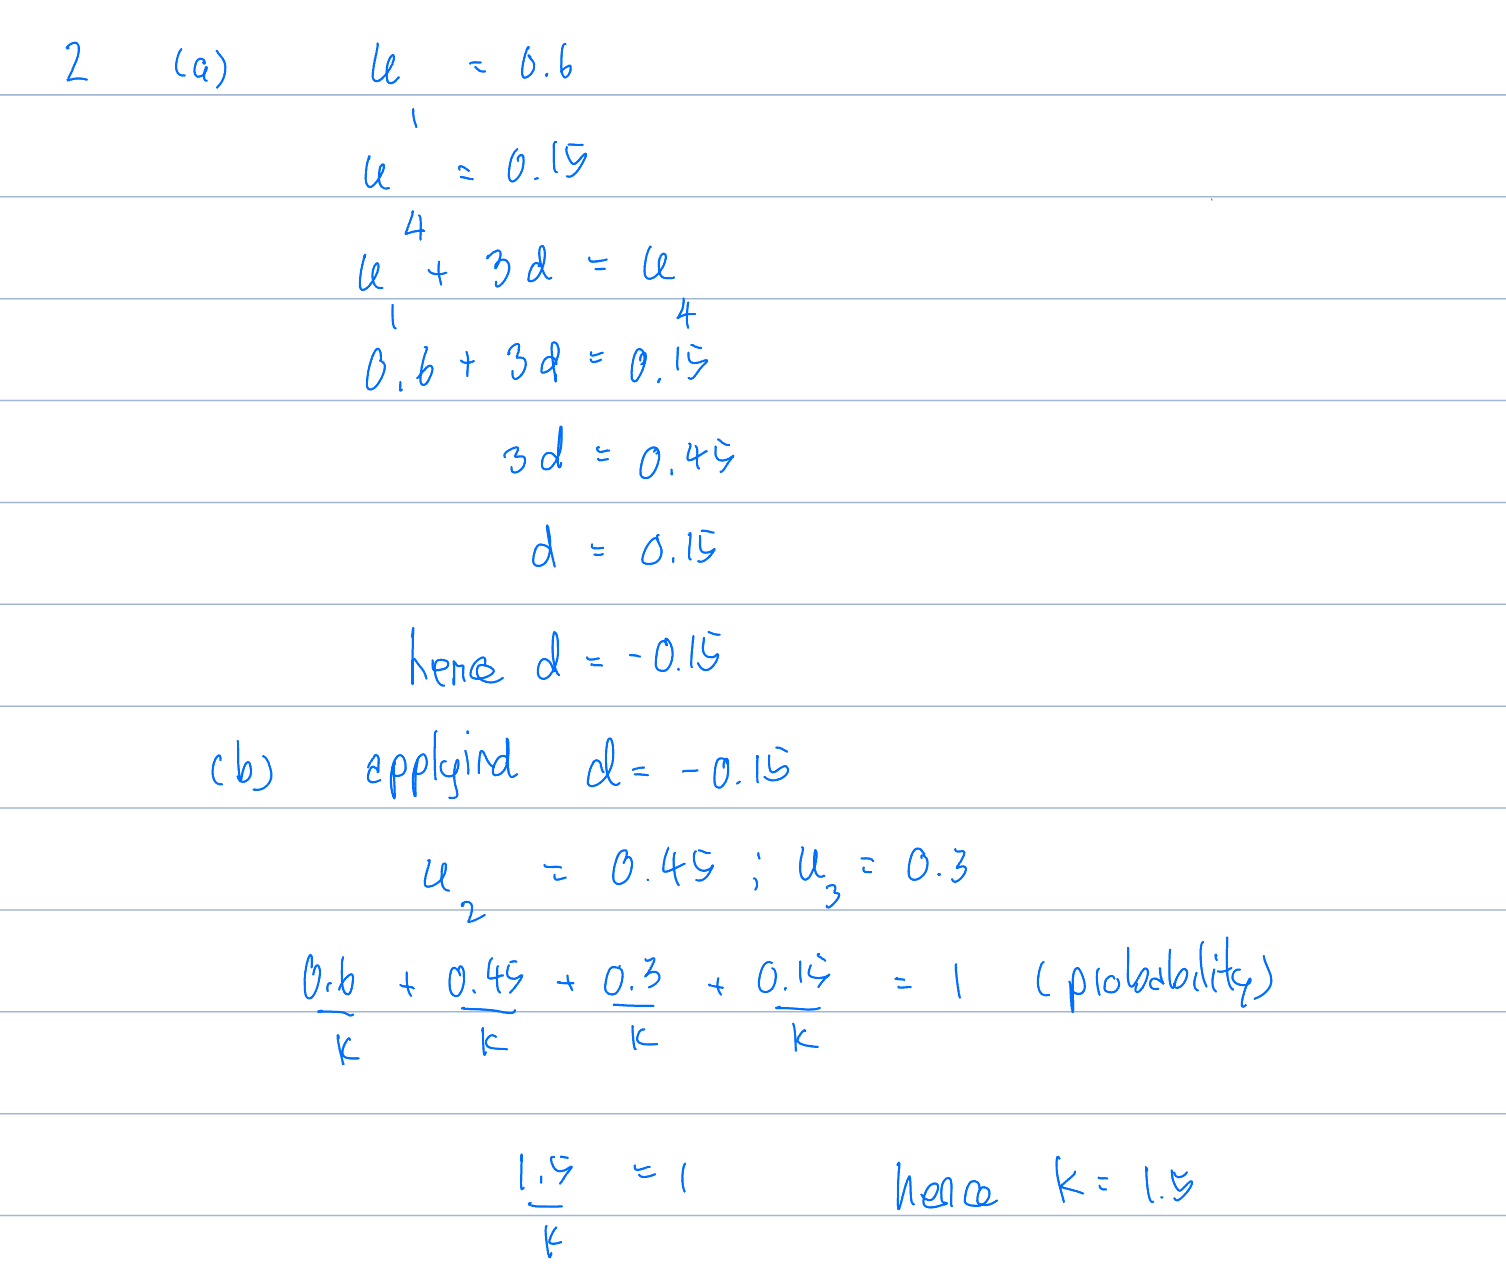 2 (a) u₁ = 0.6
u₄ = 0.15
u₁ + 3d = u₄
0.6 + 3d = 0.15
3d = 0.45
d = 0.15
hence d = -0.15
(b) applyind d = -0.15
u₂ = 0.45 ; u₃ = 0.3
0.6/k + 0.45/k + 0.3/k + 0.15/k = 1 (probability)
1.5/k = 1 hence k = 1.5